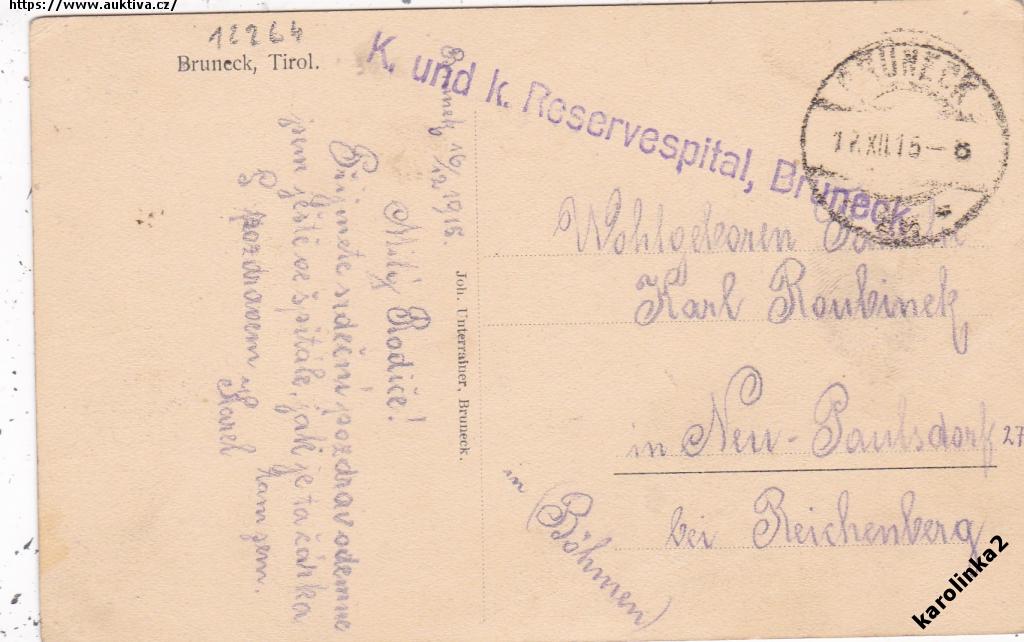 https://www.auktiva.cz/
12264
Bruneck, Tirol.
K. und k. Reservespital, Bruneck
BRUNECK
17.XII.15-8
Bruneck 16/12 1915.
Milý Rodiče!
Přijmete srdečni pozdrav odemne
jsem ještě ve špitále, jak je ta čárka
tam jsem.
S pozdravem Karel
Joh. Unterrainer, Bruneck.
Wohlgeboren
Karl Roubinek
in Neu-Paulsdorf 27
bei Reichenberg
in (Böhmen)
karolinka2